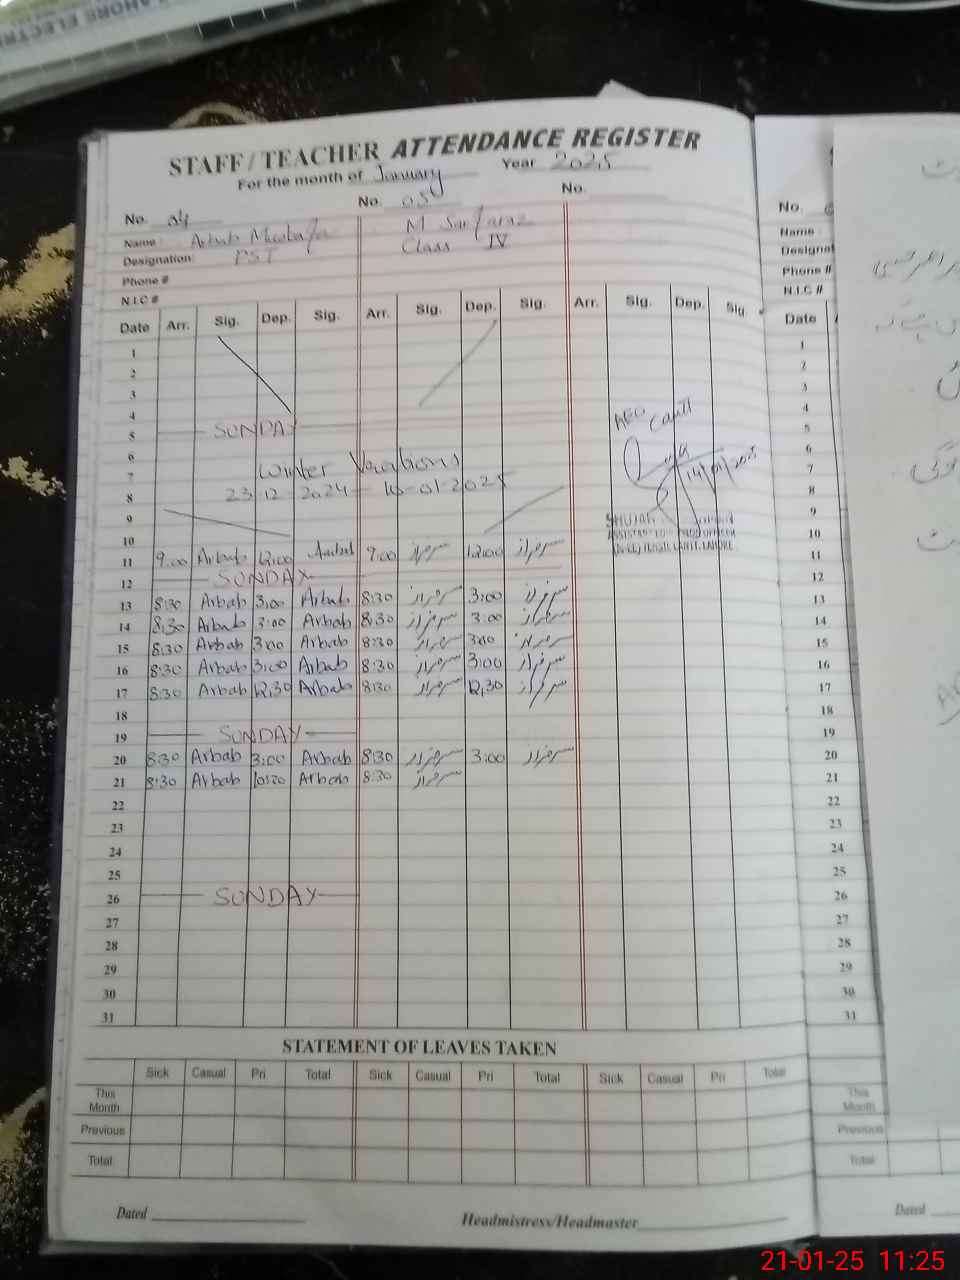 LAHORE ELECTR
STAFF / TEACHER ATTENDANCE REGISTER
For the month of January Year 2025
No. 04 No. 05 No.
Name : Arbab M Sarfaraz
Designation: PST Class IV
Phone #
N.I.C #
Date Arr. Sig. Dep. Sig. Arr. Sig. Dep. Sig. Arr. Sig. Dep. Sig
1
2
3
4
5 SUNDAY
6
7 Winter Vacations
8 23-12-2024 - 10-01-2025
9
10
11 9:00 Arbab 12:00 Arbab 9:00 سرفراز 12:00 سرفراز
12 SUNDAY
13 8:30 Arbab 3:00 Arbab 8:30 سرفراز 3:00 سرفراز
14 8:30 Arbab 3:00 Arbab 8:30 سرفراز 3:00 سرفراز
15 8:30 Arbab 3:00 Arbab 8:30 سرفراز 3:00 سرفراز
16 8:30 Arbab 3:00 Arbab 8:30 سرفراز 3:00 سرفراز
17 8:30 Arbab 12:30 Arbab 8:30 سرفراز 12:30 سرفراز
18
19 SUNDAY
20 8:30 Arbab 3:00 Arbab 8:30 سرفراز 3:00 سرفراز
21 8:30 Arbab 10:20 Arbab 8:30 سرفراز
22
23
24
25
26 SUNDAY
27
28
29
30
31
AEO Cantt
14/01/2025
CANTT. LAHORE
STATEMENT OF LEAVES TAKEN
Sick Casual Pri Total Sick Casual Pri Total Sick Casual Pri Total
This Month
Previous
Total
Dated Headmistress/Headmaster
No.
Name :
Designat
Phone #
N.I.C #
Date
1
2
3
4
5
6
7
8
9
10
11
12
13
14
15
16
17
18
19
20
21
22
23
24
25
26
27
28
29
30
31
This Month
Previous
Total
Dated
21-01-25 11:25